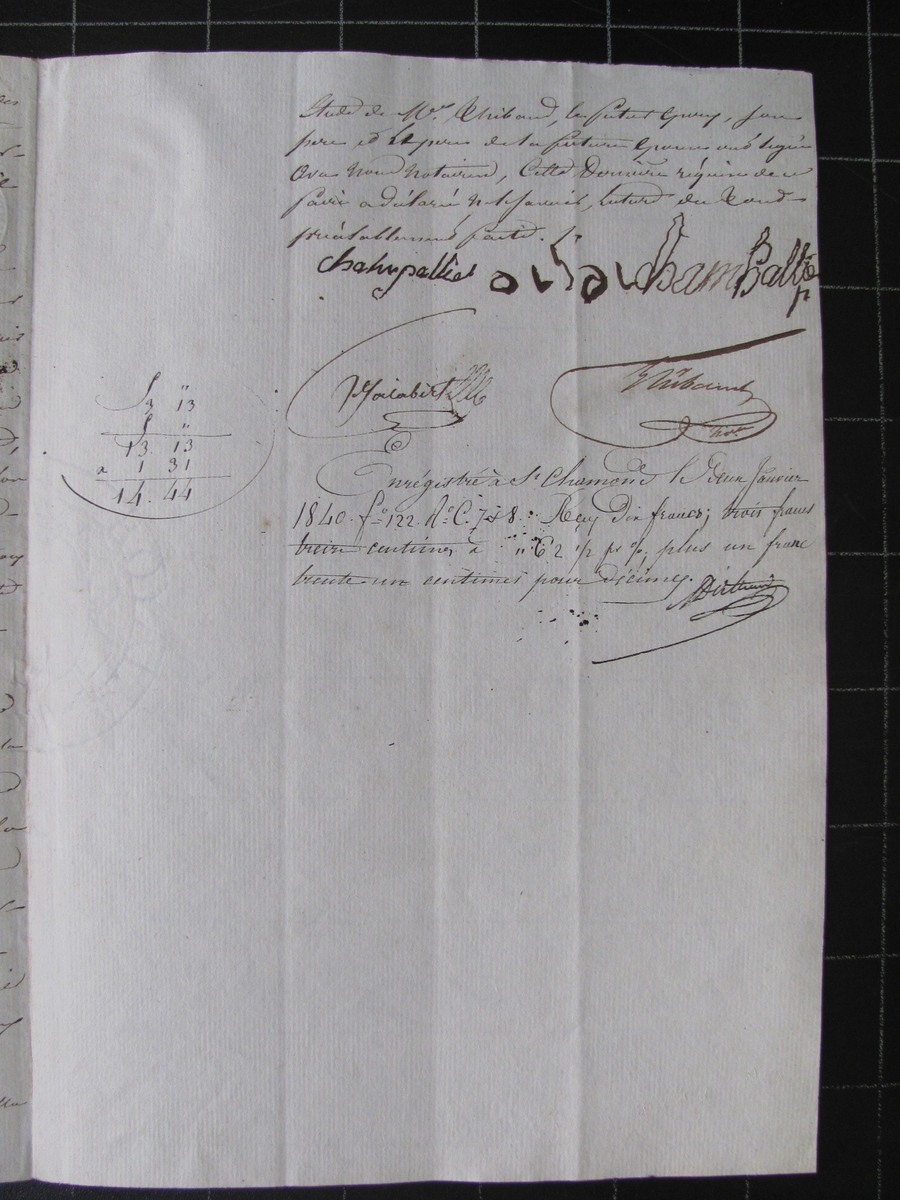 Etude de Mr. Thibaud, le futur époux, son
père et le père de la future épouse ont signé
avec nous notaires, cette dernière requise de
faire a déclaré ne savoir, lecture du tout
préalablement faite.
chahupellier
Jalabert
Thibaud
not.
5 "
3 13
5 "
13. 13
1 31
14. 44
Enrégistré à St Chamond le deux Janvier
1840. fo 122. Ro C. 7 & 8. Reçu dix francs; trois francs
treize centimes à " 62 1/2 pr %, plus un franc
trente un centimes pour décimes.